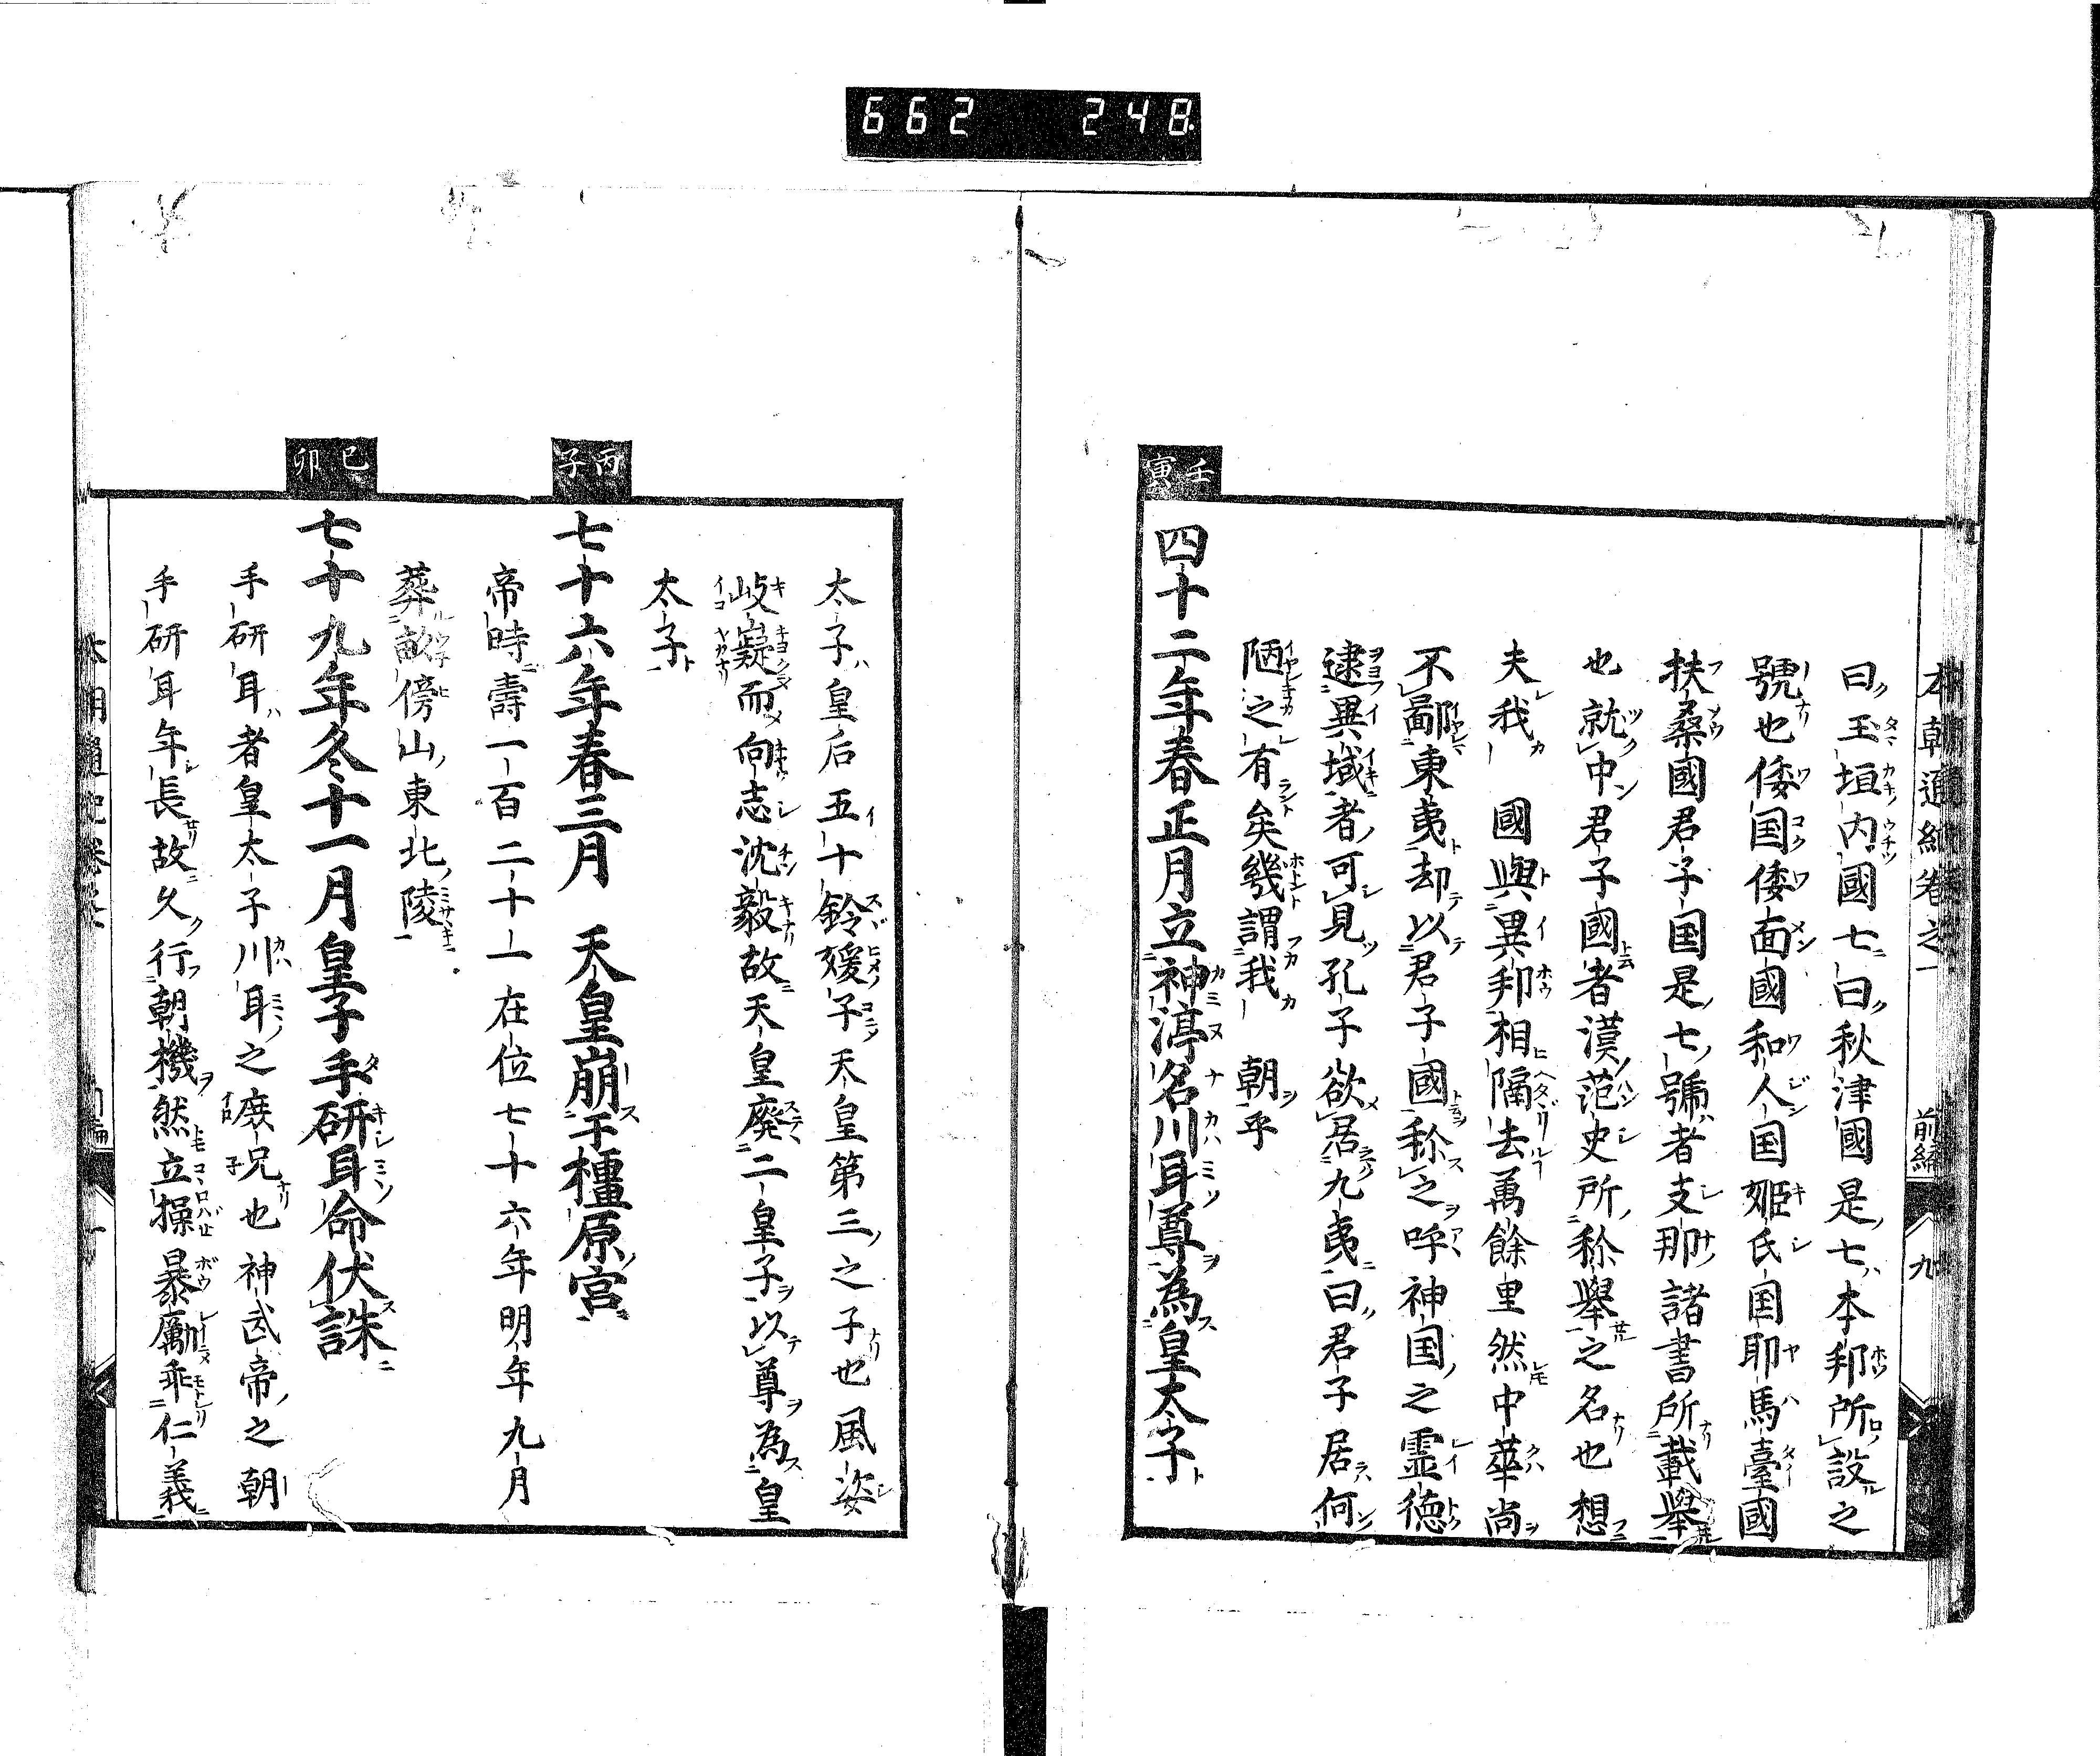 662 248
本朝通紀卷之一 前編 九
曰玉垣内國七曰秋津國是七本邦所設之
號也倭国倭面國和人国姬氏国耶馬臺國
扶桑國君子国是七號者支那諸書所載舉
也就中君子國者漢范史所称舉之名也想
夫我 國與異邦相隔去萬餘里然中華尚
不鄙東夷却以君子國称之呼神国之霊徳
逮異域者可見孔子欲居九夷曰君子居何
陋之有矣幾謂我 朝乎
壬寅
四十二年春正月立神渟名川耳尊為皇太子
太子皇后五十鈴媛子天皇第三之子也風姿
岐嶷而向志沈毅故天皇廃二皇子以尊為皇
太子
丙子
七十六年春三月 天皇崩于橿原宮
帝時壽一百二十一在位七十六年明年九月
葬畝傍山東北陵
己卯
七十九年冬十一月皇子手研耳命伏誅
手研耳者皇太子川耳之庶兄也神武帝之朝
手研耳年長故久行朝機然立操暴厲乖仁義